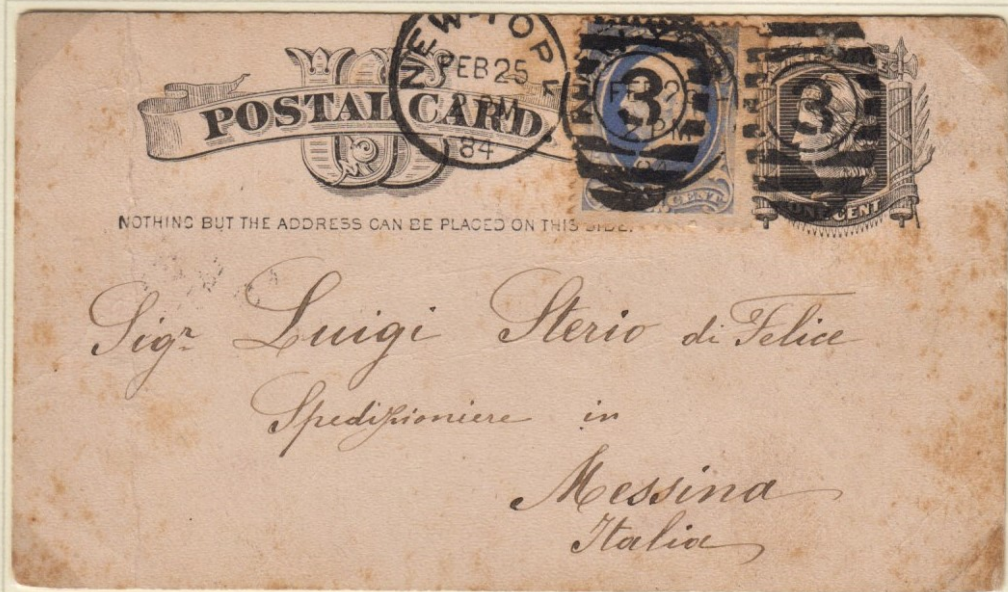 POSTAL CARD
US
NEW YORK
FEB 25
2 PM
84
3
2 PM
3
ONE CENT
NOTHING BUT THE ADDRESS CAN BE PLACED ON THIS SIDE.
Sigr Luigi Sterio di Felice
Spedizioniere in
Messina
Italia